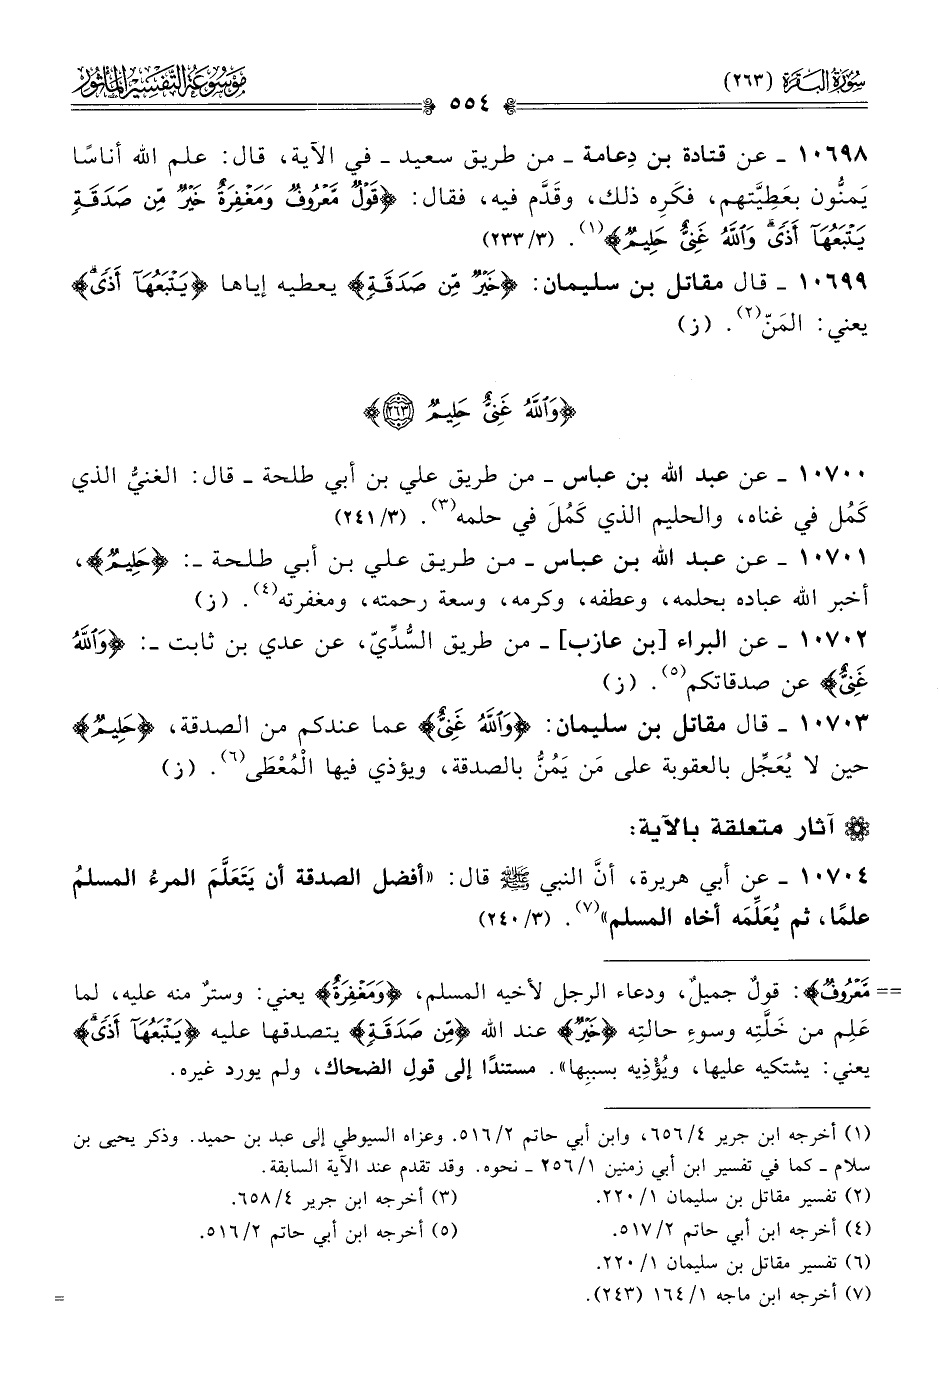 سُورَةُ البَقَرَة (٢٦٣)
٥٥٤
مَوْسُوعَة التَّفْسِيْر المَأْثُور
١٠٦٩٨ ـ عن قتادة بن دِعامة ـ من طريق سعيد ـ في الآية، قال: علم الله أناسًا
يَمنُّون بعَطِيَّتهم، فكَره ذلك، وقدَّم فيه، فقال: ﴿قَوْلٌ مَّعْرُوفٌ وَمَغْفِرَةٌ خَيْرٌ مِّن صَدَقَةٍ
يَتْبَعُهَآ أَذًى وَٱللَّهُ غَنِىٌّ حَلِيمٌ﴾(١). (٣/ ٢٣٣)
١٠٦٩٩ ـ قال مقاتل بن سليمان: ﴿خَيْرٌ مِّن صَدَقَةٍ﴾ يعطيه إياها ﴿يَتْبَعُهَآ أَذًى﴾
يعني: المَنّ(٢). (ز)
﴿وَٱللَّهُ غَنِىٌّ حَلِيمٌ ٢٦٣﴾
١٠٧٠٠ ـ عن عبد الله بن عباس ـ من طريق علي بن أبي طلحة ـ قال: الغنيُّ الذي
كَمُل في غناه، والحليم الذي كَمُلَ في حلمه(٣). (٣/ ٢٤١)
١٠٧٠١ ـ عن عبد الله بن عباس ـ من طريق علي بن أبي طلحة ـ: ﴿حَلِيمٌ﴾،
أخبر الله عباده بحلمه، وعطفه، وكرمه، وسعة رحمته، ومغفرته(٤). (ز)
١٠٧٠٢ ـ عن البراء [بن عازب] ـ من طريق السُّدِّيّ، عن عدي بن ثابت ـ: ﴿وَٱللَّهُ
غَنِىٌّ﴾ عن صدقاتكم(٥). (ز)
١٠٧٠٣ ـ قال مقاتل بن سليمان: ﴿وَٱللَّهُ غَنِىٌّ﴾ عما عندكم من الصدقة، ﴿حَلِيمٌ﴾
حين لا يُعَجِّل بالعقوبة على مَن يَمُنُّ بالصدقة، ويؤذي فيها الْمُعْطَى(٦). (ز)
آثار متعلقة بالآية:
١٠٧٠٤ ـ عن أبي هريرة، أنَّ النبي ﷺ قال: «أفضل الصدقة أن يَتَعَلَّمَ المرءُ المسلمُ
علمًا، ثم يُعَلِّمَه أخاه المسلم»(٧). (٣/ ٢٤٠)
== مَعْرُوفٌ﴾: قولٌ جميلٌ، ودعاء الرجل لأخيه المسلم، ﴿وَمَغْفِرَةٌ﴾ يعني: وسترٌ منه عليه، لما
عَلِم من خَلَّتِه وسوءِ حالتِه ﴿خَيْرٌ﴾ عند الله ﴿مِّن صَدَقَةٍ﴾ يتصدقها عليه ﴿يَتْبَعُهَآ أَذًى﴾
يعني: يشتكيه عليها، ويُؤْذِيه بسببِها». مستندًا إلى قولِ الضحاك، ولم يورد غيره.
(١) أخرجه ابن جرير ٤/ ٦٥٦، وابن أبي حاتم ٢/ ٥١٦. وعزاه السيوطي إلى عبد بن حميد. وذكر يحيى بن
سلام ـ كما في تفسير ابن أبي زمنين ١/ ٢٥٦ ـ نحوه. وقد تقدم عند الآية السابقة.
(٢) تفسير مقاتل بن سليمان ١/ ٢٢٠. (٣) أخرجه ابن جرير ٤/ ٦٥٨.
(٤) أخرجه ابن أبي حاتم ٢/ ٥١٧. (٥) أخرجه ابن أبي حاتم ٢/ ٥١٦.
(٦) تفسير مقاتل بن سليمان ١/ ٢٢٠.
(٧) أخرجه ابن ماجه ١/ ١٦٤ (٢٤٣). =